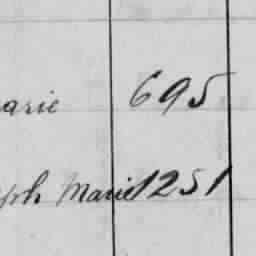 arie 695
eph Marie 1251